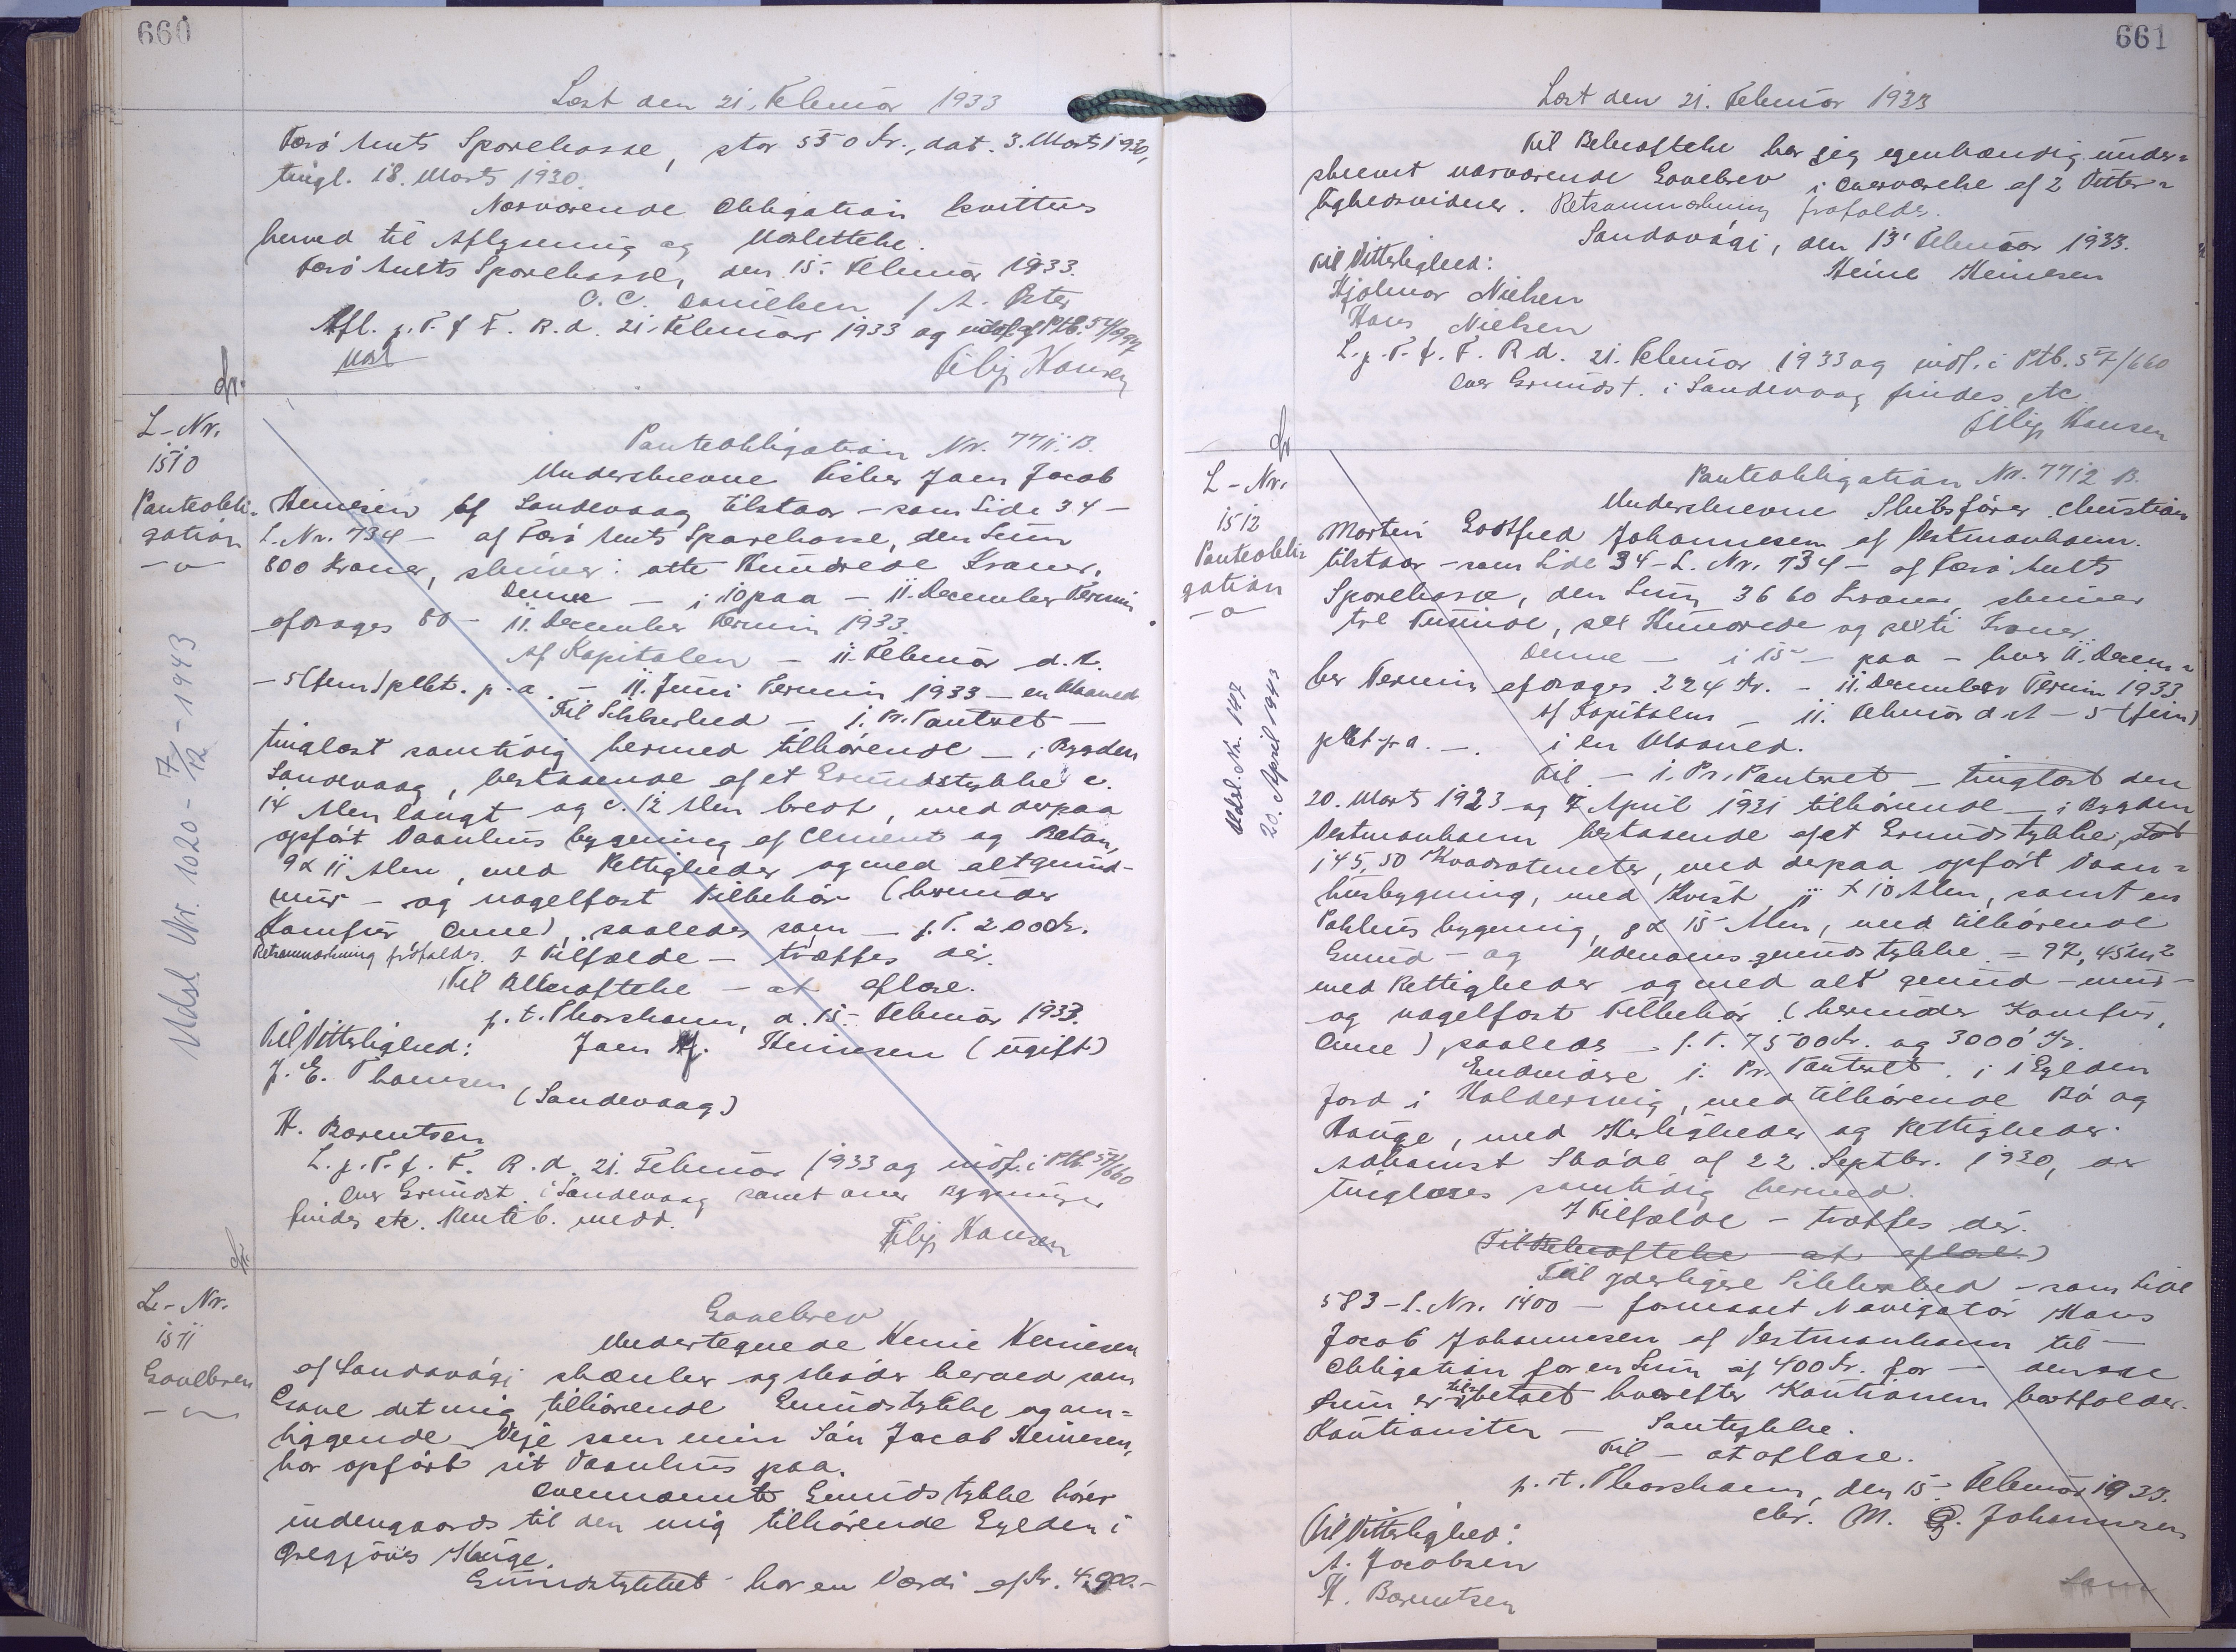 660
Læst den 21. Februar 1933
Færö Amts Sparekasse, stor 550 Kr., dat. 3. Marts 1930,
tingl. 18. Marts 1930.
Nærværende Obligation kvitteres
herved til Aflysning og Udslettelse.
Færö Amts Sparekasse, den 15. Februar 1933.
C. C. Danielsen / A. Ister
Afl. p. T. f. F. R. d. 21. Februar 1933 og udsl. af Ptb.
Filip Hansen
L-Nr.
1510
Panteobli-
gation
Udsl. Nr. 1020 - 7/12 - 1943
Panteobligation Nr. 7711. B.
Underskrevne Fisker Joen Jacob
Heinesen af Sandevaag tilstaar - som Side 34 -
L. Nr. 734 - af Færö Amts Sparekasse, den Sum
800 Kroner, skriver: otte Hundrede Kroner.
Denne - i 10 paa - 11. December Termin
afdrages 80 - 11. December Termin 1933.
Af Kapitalen - 11. Februar d. A.
- 5 (fem) pCt. p. a. - 11. Juni Termin 1933 - en Maaned
Til Sikkerhed - 1. Pr. Panteret -
tinglæst samtidig hermed tilhörende - i Bygden
Sandevaag, bestaaende af et Grundstykke c.
14 Alen langt og c. 12 Alen bredt, med derpaa
opført Vaanhus bygning af Cement og Beton,
9 x 11 Alen, med Rettigheder og med alt grund-
mur - og nagelfast Tilbehör (herunder
Komfur, Ovne), saaledes som - f. T. 2000 Kr.
Retsanmærkning frafaldes. I Tilfælde - træffes dér.
Til Bekræftelse - at aflæse.
p. t. Thorshavn, d. 15. Februar 1933.
Til Vitterlighed: Joen J. Heinesen (ugift)
J. E. Thomsen
(Sandevaag)
H. Berentsen
L. p. T. f. F. R. d. 21. Februar 1933 og indf. i Ptb. 57/660
Over Grundst. i Sandevaag samt over Bygninger
findes etc. Panteb. medd.
Filip Hansen
L-Nr.
1511
Gavebrev
Gavebrev
Undertegnede Heine Heinesen
af Sandavági skænker og skøder herved som
Gave det mig tilhörende Grundstykke og om-
liggende Veje som min Sön Jacob Heinesen,
har opfört sit Vaanhus paa.
Ovennævnte Grundstykke hörer
indengaards til den mig tilhörende Gylden i
Gregjónes Hauge.
Grundstykket har en Værdi af Kr. 4,900.-
661
Læst den 21. Februar 1933
Til Bekræftelse har jeg egenhændig under-
skrevet nærværende Gavebrev i Overværelse af 2 Vitter-
lighedsvidner. Retsanmærkning frafaldes.
Sandavági, den 13' Februar 1933.
Til Vitterlighed: Heine Heinesen
Hjalmar Nielsen
Hans Nielsen
L. p. T. f. F. R d. 21. Februar 1933 og indf. i Ptb. 57/660
Over Grundst. i Sandevaag findes etc.
Filip Hansen
L-Nr.
1512
Panteobli-
gation
Udsl. Nr. 197
20. April 1943
Panteobligation Nr. 7712 B.
Underskrevne Skibsfører Christian
Morten Gotfred Johannesen af Vestmanhavn.
tilstaar - som Side 34 - L. Nr. 734 - af Færö Amts
Sparekasse, den Sum 3660 Kroner, skriver
tre Tusinde, sex Hundrede og sexti Kroner.
Denne - i 15 - paa - hver 11. Decem-
ber Termin afdrages 224 Kr. - 11. December Termin 1933
Af Kapitalen - 11. Februar d. A - 5 (fem)
pCt p. a. - i en Maaned.
Til - 1. Pr. Panteret - tinglæst den
20. Marts 1923 og 7 April 1931 tilhörende - i Bygden
Vestmanhavn bestaaende af et Grundstykke, stort
145,50 Kvadratmeter, med derpaa opfört Vaan-
husbygning, med Kvist, 11 x 10 Alen, samt en
Pakhusbygning, 8 x 15 Alen, med tilhörende
Grund - og udenomsgrundstykke = 97,45 m2
med Rettigheder og med alt grund - mur -
og nagelfast Tilbehör (herunder Komfur,
Ovne) saaledes - f. T. 7500 Kr. og 3000 Kr.
Endvidere 1. Pr. Panteret i 1 Gylden
Jord i Haldersvig, med tilhörende Bö og
Hauge, med Herligheder og Rettigheder.
Adkomst Sköde af 22. Septbr. 1930, der
tinglæses samtidig hermed.
I Tilfælde - træffes dér.
(Til Bekræftelse - at aflæse.)
Til yderligere Sikkerhed - som Side
583 - L. Nr. 1400 - forneset Navigatör Hans
Jacob Johannesen af Vestmanhavn til -
Obligation for en Sum af 400 Kr. for - denne
Sum er tilbetalt hvorefter Kautionen bortfalder.
Kautionister - Samtykke.
Til - at aflæse.
p. t. Thorshavn, den 15. Februar 1933.
Til Vitterlighed: Chr. M. G. Johannesen
A. Jacobsen
H. Berentsen
Som